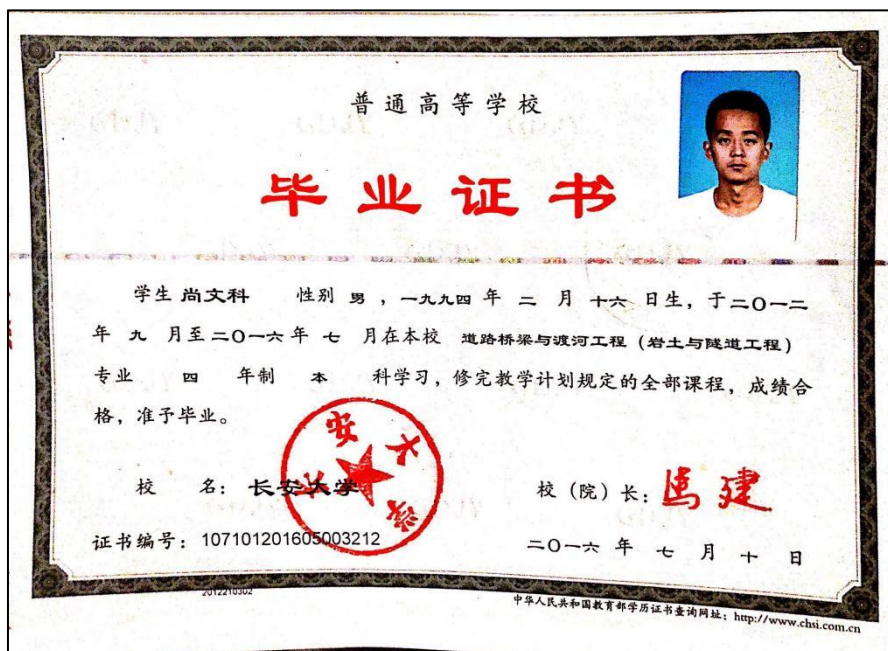 普通高等学校
毕业证书
学生 尚文科 性别 男 ，一九九四 年 二 月 十六 日生，于二〇一二
年 九 月至二〇一六 年 七 月在本校 道路桥梁与渡河工程（岩土与隧道工程）
专业 四 年制 本 科学习，修完教学计划规定的全部课程，成绩合
格，准予毕业。
长安大学
校 名：长安大学 校（院）长：
证书编号：107101201605003212 二〇一六 年 七 月 十 日
2012210302
中华人民共和国教育部学历证书查询网址：http://www.chsi.com.cn